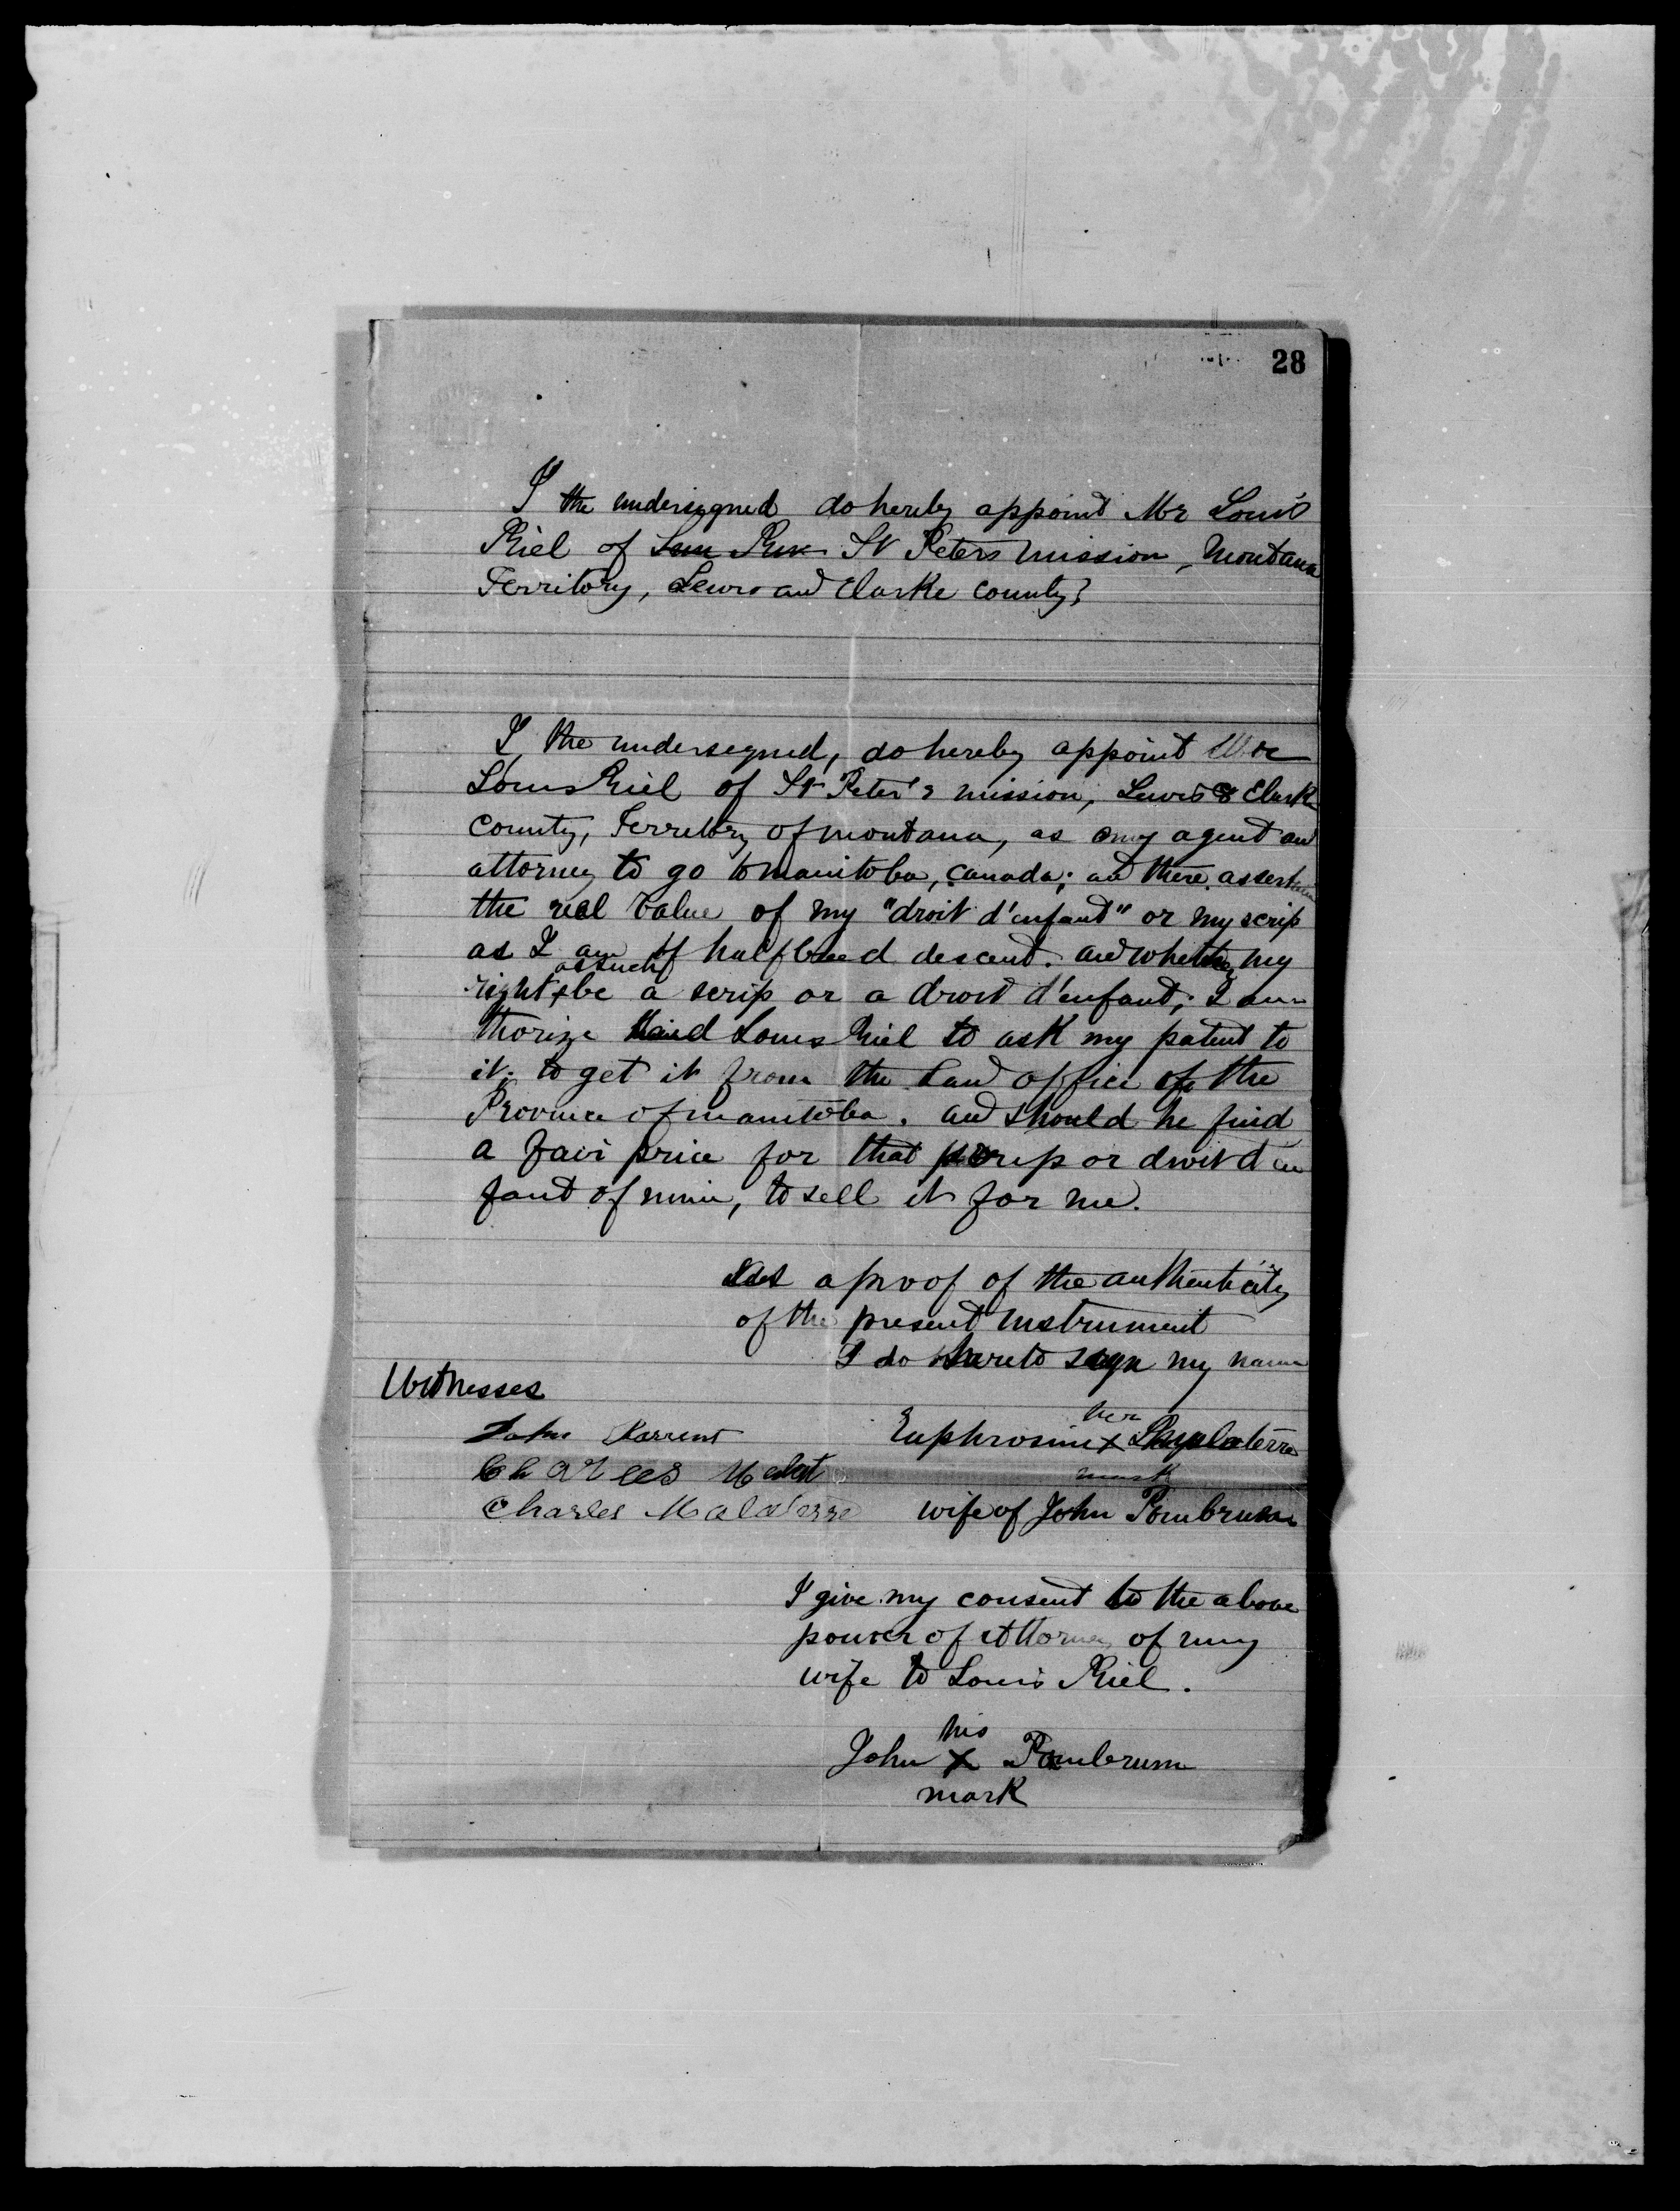 28
I the undersigned do hereby appoint Mr Louis
Riel of Sun River St Peters mission, Montana
Territory, Lewis and Clarke county;
I, the undersegned, do hereby appoint Mr
Louis Riel of St Peter's mission, Lewis & Clark
county, Territory of montana, as my agent and
attorney to go to manitoba, canada; and there assertain
the real value of my "droit d'enfant" or my scrip
as I am of halfbreed descent. and whether my
right as such be a scrip or a droit d'enfant, I au-
thorize said Louis Riel to ask my patent to
it; to get it from the Land office of the
Province of manitoba. and should he find
a fair price for that scrip or droit d'en
fant of mine, to sell it for me.
As a proof of the authenticity
of the present instrument
I do hereto sign my name
Witnesses
her
John Euphrosine x
Charles
mark
Charles Malaterre wife of John Pombrun
I give my consent to the above
power of Attorney of my
wife to Louis Riel.
his
John x Pombrun
mark